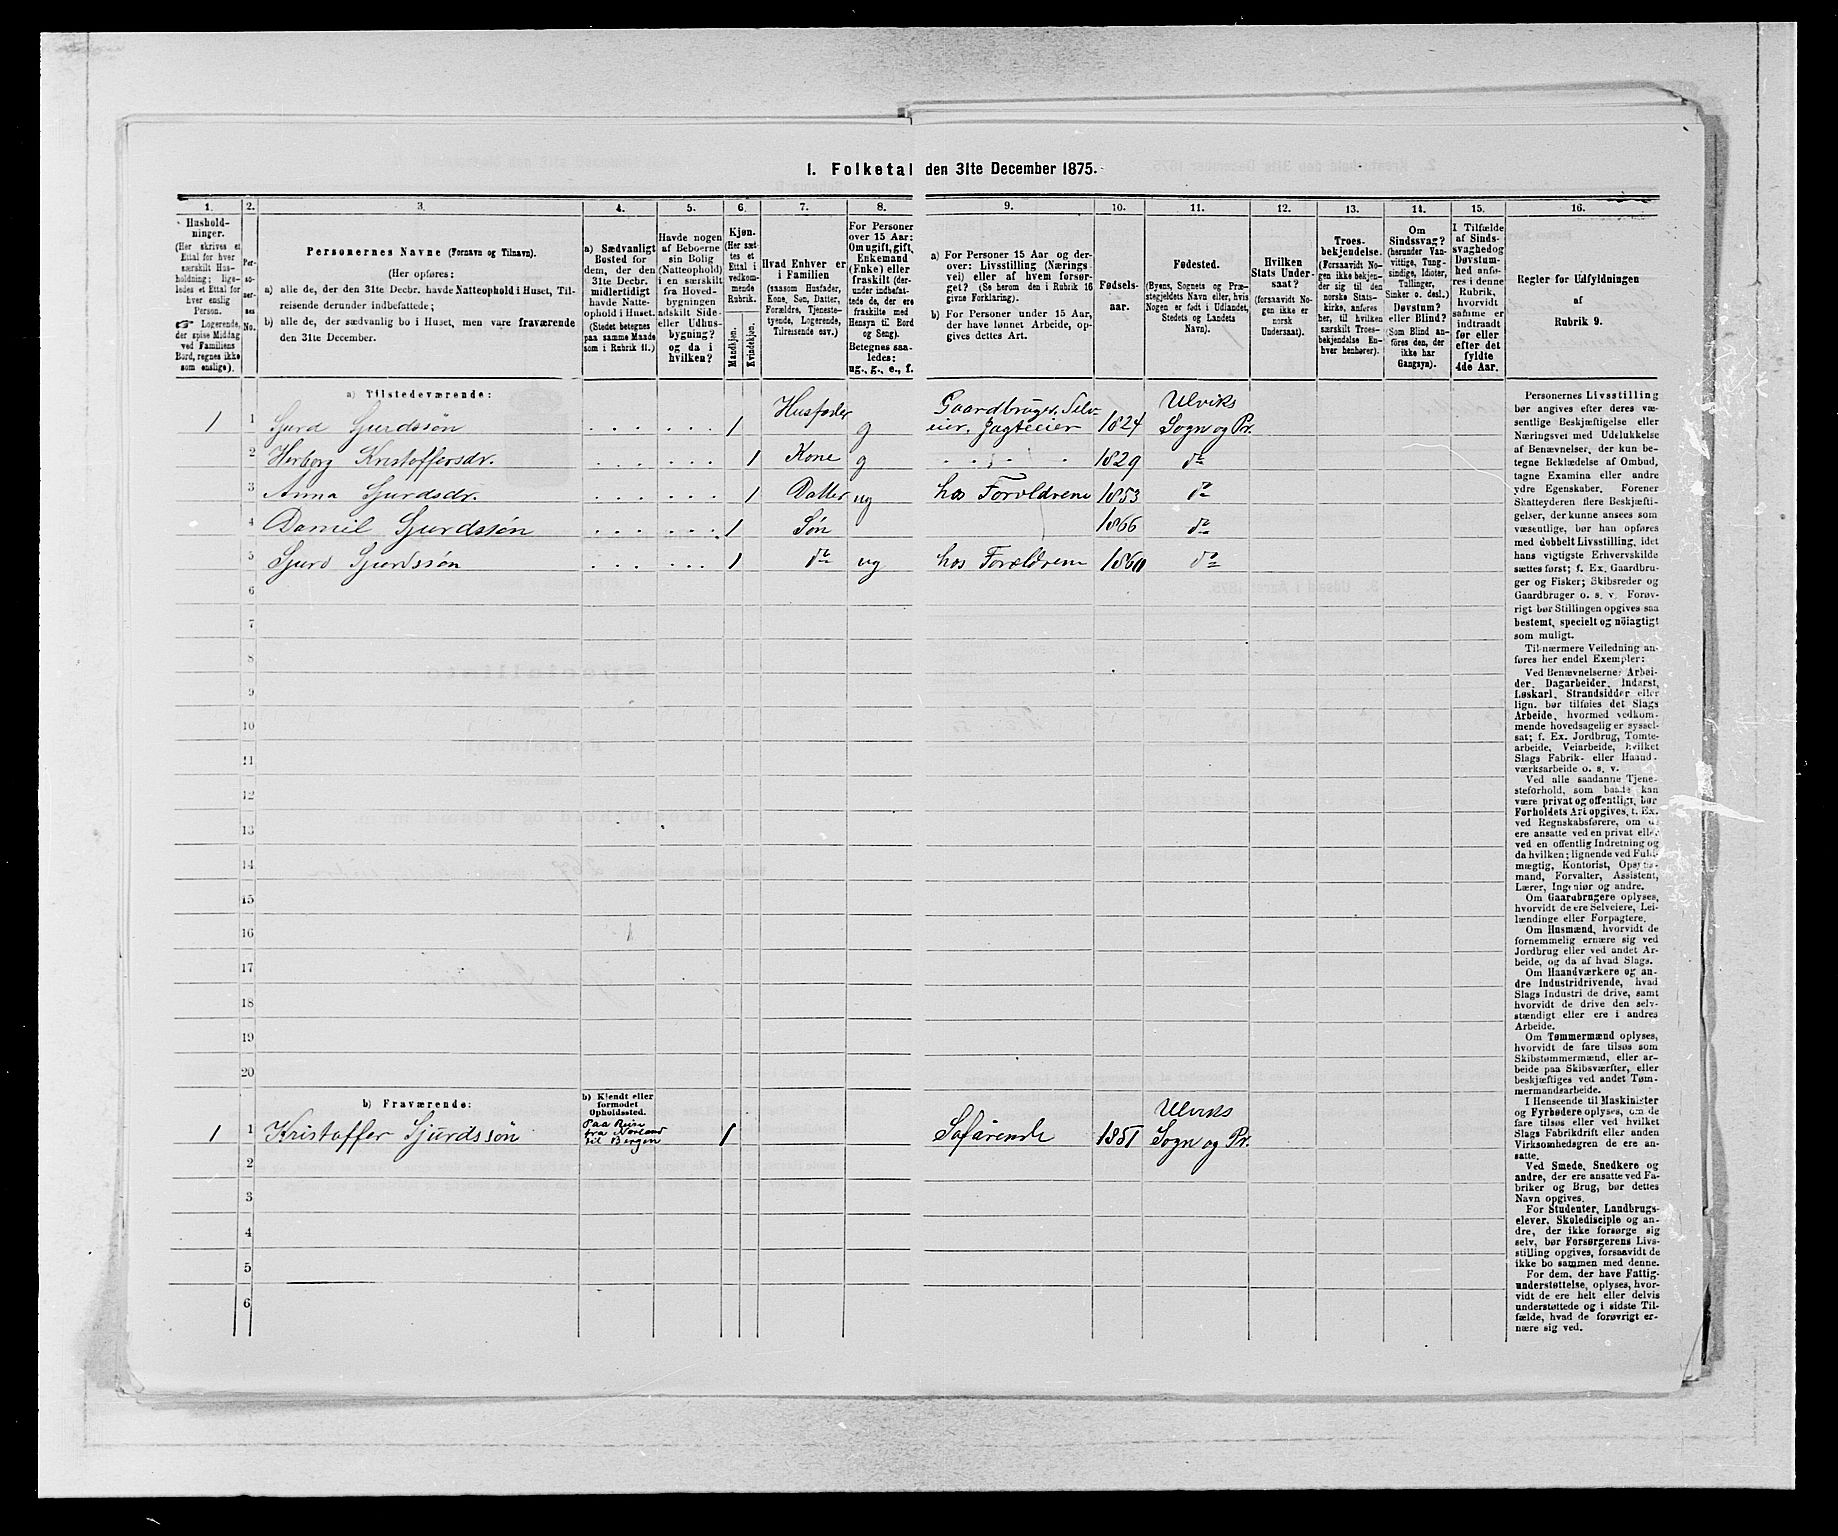 1. Folketal den 31te December 1875.
1. 2. 3. 4. 5. 6. 7. 8. 9. 10. 11. 12. 13. 14. 15. 16.
Hushold-
ninger.
(Her skrives et
Ettal for hver
særskilt Hus-
holdning; lige-
ledes et Ettal for
hver enslig
Person.
☞ Logerende,
der spise Middag
ved Familiens
Bord, regnes ikke
som enslige).
Per-
so-
ner-
nes
No.
Personernes Navne (Fornavn og Tilnavn).
(Her opføres:
a) alle de, der den 31te Decbr. havde Natteophold i Huset, Til-
reisende derunder indbefattede;
b) alle de, der sædvanlig bo i Huset, men vare fraværende
den 31te December.
a) Sædvanligt
Bosted for
dem, der den
31te Decbr.
midlertidigt
havde Natte-
ophold i Huset.
(Stedet betegnes
paa samme Maade
som i Rubrik 11.)
Havde nogen
af Beboerne
sin Bolig
(Natteophold)
i en særskilt
fra Hoved-
bygningen
adskilt Side-
eller Udhus-
bygning?
og da i
hvilken?
Kjøn.
(Her sæt-
tes et
Ettal i
vedkom-
mende
Rubrik.
Mandkjøn.
Kvindekjøn.
Hvad Enhver er
i Familien
(saasom Husfader,
Kone, Søn, Datter,
Forældre, Tjeneste-
tyende, Logerende,
Tilreisende osv.)
For Personer
over 15 Aar:
Om ugift, gift,
Enkemand
(Enke) eller
fraskilt (der-
under indbefat-
tede de, der ere
fraskilte med
Hensyn til Bord
og Seng).
Betegnes saa-
ledes:
ug., g., e., f.
a) For Personer 15 Aar og der-
over: Livsstilling (Nærings-
vei) eller af hvem forsør-
get? (Se herom den i Rubrik 16
givne Forklaring).
b) For Personer under 15 Aar,
der have lønnet Arbeide, op-
gives dettes Art.
Fødsels-
aar.
Fødested.
(Byens, Sognets og Præ-
stegjeldets Navn eller, hvis
Nogen er født i Udlandet,
Stedets og Landets
Navn).
Hvilken
Stats Under-
saat?
(forsaavidt No-
gen ikke er
norsk
Undersaat).
Troes-
bekjendelse.
(Forsaavidt No-
gen ikke bekjen-
der sig til den
norske Stats-
kirke, anføres
her, til hvilken
særskilt Troes-
bekjendelse En-
hver henhører).
Om
Sindssvag?
(herunder Van-
vittige, Tung-
sindige, Idioter,
Tullinger,
Sinker o. desl.)
Døvstum?
eller Blind?
(Som Blind an-
føres den, der
ikke har
Gangsyn).
I Tilfælde
af Sinds-
svaghed og
Døvstum-
hed anfø-
res i denne
Rubrik,
hvorvidt
samme er
indtraadt
før eller
efter det
fyldte
4de Aar.
Regler for Udfyldningen
af
Rubrik 9.
a) Tilstedeværende:
1 1 Sjurd Sjurdssøn 1 Husfader g Gaardbruger, Selv-
eier, Jagteeier 1824 Ulviks
Sogn og Pr.
2 Herborg Kristoffersdr. 1 Kone g 1829 do
3 Anna Sjurdsdr. 1 Datter ug hos Forældrene 1853 do
4 Daniel Sjurdssøn 1 Søn 1866 do
5 Sjurd Sjurdssøn 1 do ug hos Forældrene 1860 do
6
7
8
9
10
11
12
13
14
15
16
17
18
19
20
b) Fraværende:
b) Kjendt eller
formodet
Opholdssted.
1 1 Kristoffer Sjurdssøn Paa Reise
fra Norland
til Bergen 1 Søfarende 1851 Ulviks
Sogn og Pr.
2
3
4
5
6
Personernes Livsstilling
bør angives efter deres væ-
sentlige Beskjæftigelse eller
Næringsvei med Udelukkelse
af Benævnelser, der kun be-
tegne Beklædelse af Ombud,
tagne Examina eller andre
ydre Egenskaber. Forener
Skatteyderen flere Beskjæfti-
gelser, der kunne ansees som
væsentlige, bør han opføres
med dobbelt Livsstilling, idet
hans vigtigste Erhvervskilde
sættes først; f. Ex. Gaardbru-
ger og Fisker; Skibsreder og
Gaardbruger o. s. v. Forøv-
rigt bør Stillingen opgives saa
bestemt, specielt og nöiagtigt
som muligt.
Til nærmere Veiledning an-
føres her endel Exempler:
Ved Benævnelserne: Arbei-
der, Dagarbeider, Inderst,
Løskarl, Strandsidder eller
lign. bør tilføies det Slags
Arbeide, hvormed vedkom-
mende hovedsagelig er syssel-
sat; f. Ex. Jordbrug, Tomte-
arbeide, Veiarbeide, hvilket
Slags Fabrik- eller Haand-
værksarbeide o. s. v.
Ved alle saadanne Tjene-
steforhold, som baade kan
være privat og offentligt, bør
Forholdets Art opgives, t. Ex.
ved Regnskabsførere, om de
ere ansatte ved en privat eller
ved en offentlig Indretning og
da hvilken; lignende ved Fuld-
mægtig, Kontorist, Opsyns-
mand, Forvalter, Assistent,
Lærer, Ingeniør og andre.
Om Gaardbrugere oplyses,
hvorvidt de ere Selveiere, Lei-
lændinge eller Forpagtere.
Om Husmænd, hvorvidt de
fornemmelig ernære sig ved
Jordbrug eller ved andet Ar-
beide, og da af hvad Slags.
Om Haandværkere og an-
dre Industridrivende, hvad
Slags Industri de drive, samt
hvorvidt de drive den selv-
stændigt eller ere i andres
Arbeide.
Om Tømmermænd oplyses,
hvorvidt de fare tilsøs som
Skibstømmermænd, eller ar-
beide paa Skibsværfter, eller
beskjæftiges ved andet Tøm-
mermandsarbeide.
I Henseende til Maskinister
og Fyrbødere oplyses, om de
fare tilsøs eller ved hvilket
Slags Fabrikdrift eller anden
Virksomhedsgren de ere an-
satte.
Ved Smede, Snedkere og
andre, der ere ansatte ved Fa-
briker og Brug, bør dettes
Navn opgives.
For Studenter, Landbrugs-
elever, Skoledisciple og an-
dre, der ikke forsørge sig
selv, bør Forsørgerens Livs-
stilling opgives, forsaavidt de
ikke bo sammen med denne.
For dem, der have Fattig-
understøttelse, oplyses, hvor-
vidt de ere helt eller delvis
understøttede og i sidste Til-
fælde, hvad de forøvrigt er-
nære sig ved.